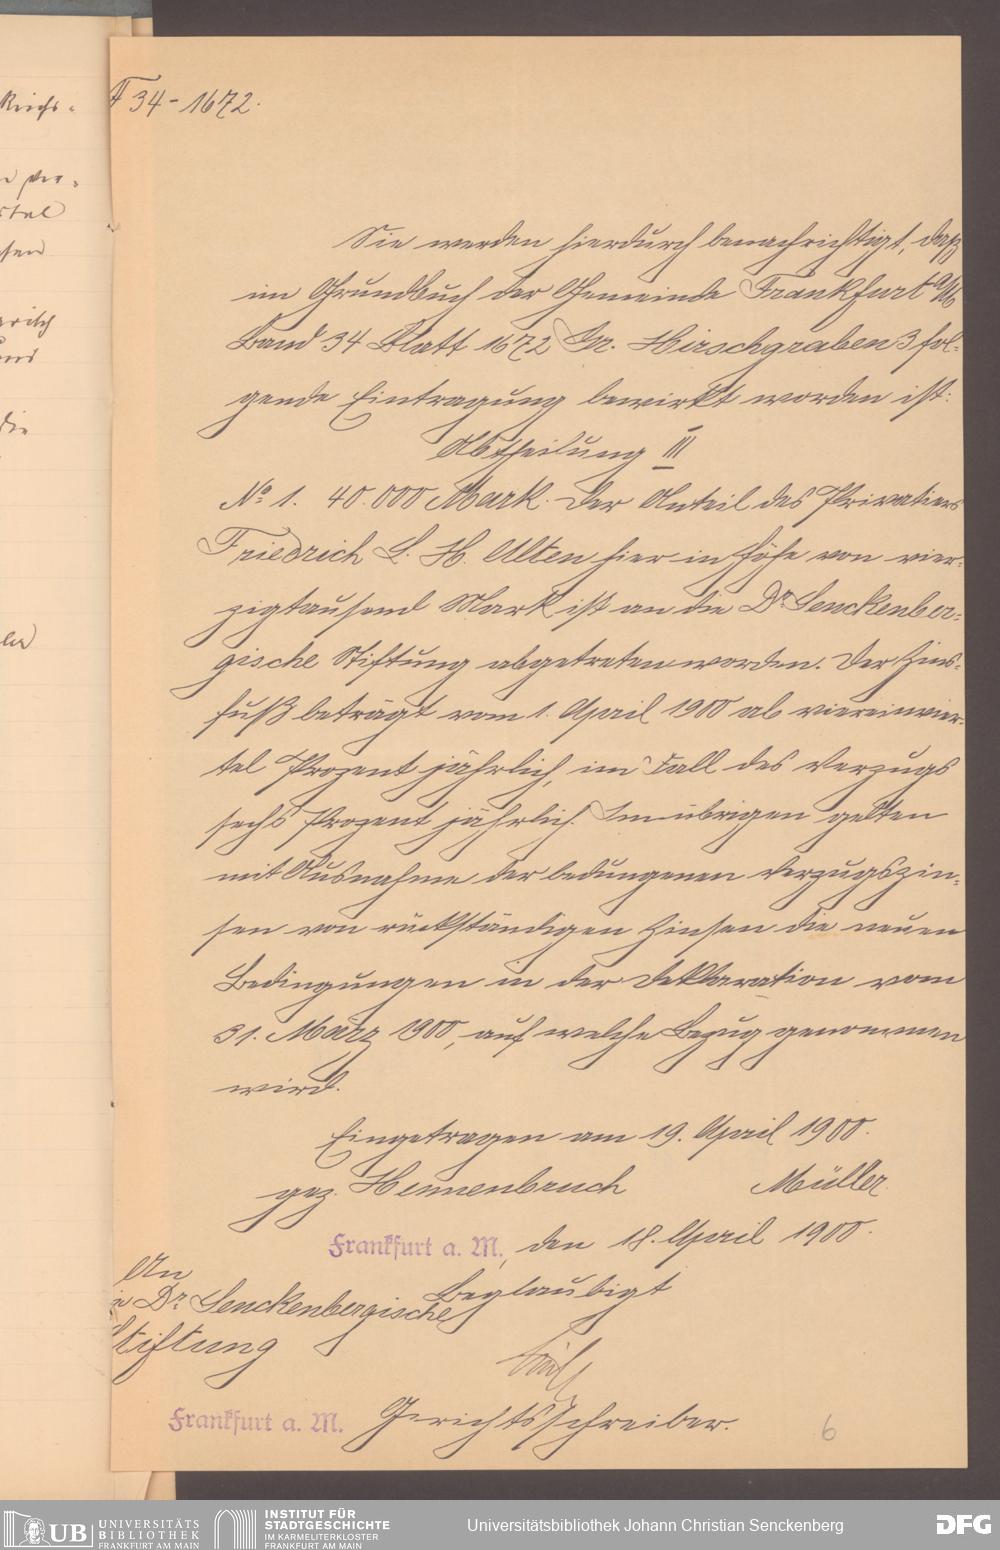 F 34 - 1672.
Sie werden hierdurch benachrichtigt, daß
im Grundbuch der Gemeinde Frankfurt a/M
Band 34 Blatt 1672 Gr. Hirschgraben 3 fol-
gende Eintragung bewirkt worden ist:
Abtheilung III
No 1. 40.000 Mark. Der Anteil des Privatiers
Friedrich L. H. Alten hier in Höhe von vier-
zigtausend Mark ist an die Dr. Senckenber-
gische Stiftung abgetreten worden. Der Zins-
fuß beträgt vom 1. April 1900 ab viereinvier-
tel Prozent jährlich, im Fall des Verzugs
sechs Prozent jährlich. Im übrigen gelten
mit Ausnahme der bedungenen Verzugszin-
sen von rückständigen Zinsen die neuen
Bedingungen in der Deklaration vom
31. März 1900, auf welche Bezug genommen
wird.
Eingetragen am 19. April 1900.
gez. Hennenbruch Müller.
Frankfurt a. M., den 18. April 1900.
An
Beglaubigt
Dr. Senckenbergische
Stiftung
Frankfurt a. M.
Gerichtsschreiber.
6
Reichs-
die
UB UNIVERSITÄTS
BIBLIOTHEK
FRANKFURT AM MAIN
INSTITUT FÜR
STADTGESCHICHTE
IM KARMELITERKLOSTER
FRANKFURT AM MAIN
Universitätsbibliothek Johann Christian Senckenberg
DFG